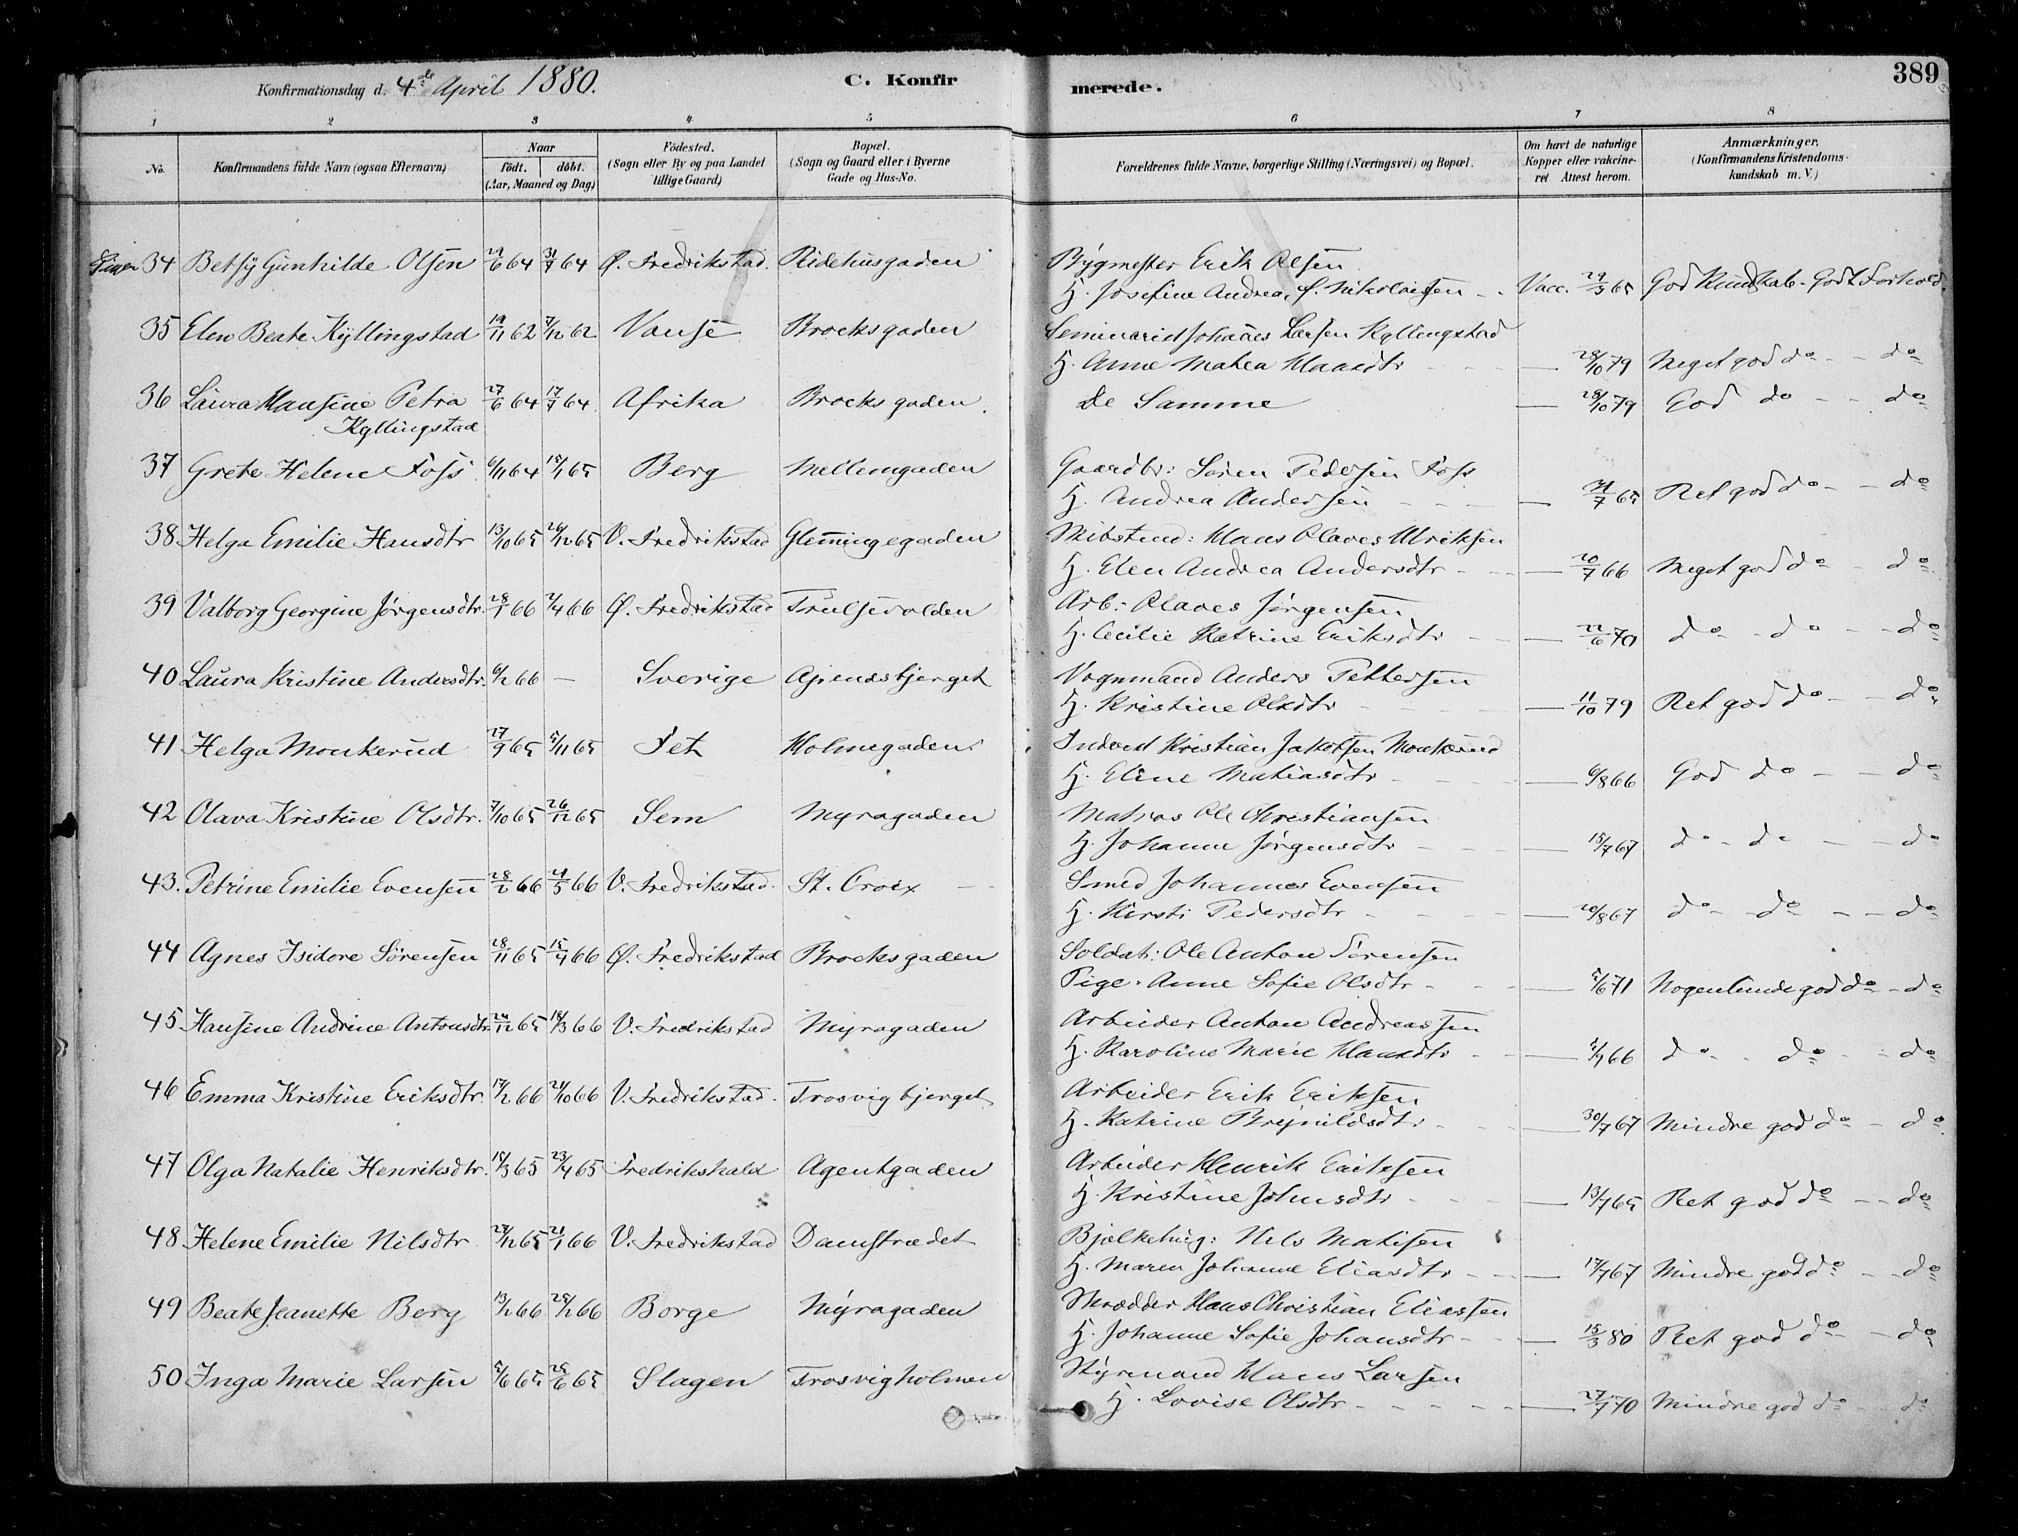 Konfirmationsdag d. 4de April 1880.
C. Konfirmerede.
389
1 2 3 4 5 6 7 8
No.
Konfirmandens fulde Navn (ogsaa Efternavn)
Naar
födt. döbt.
(Aar, Maaned og Dag)
Födested.
(Sogn eller By og paa Landet
tillige Gaard)
Bopæl.
(Sogn og Gaard eller i Byerne
Gade og Hus-No.
Forældrenes fulde Navne, borgerlige Stilling (Næringsvei) og Bopæl.
Om havt de naturlige
Kopper eller vakcine-
ret Attest herom.
Anmærkninger.
(Konfirmandens Kristendoms-
kundskab m. V.)
34 Betsy Gunhilde Olsen 29/6 64 31/7 64 Ø. Fredrikstad. Ridehusgaden Bygmester Erik Olsen
H. Josefine Andrea, f. Nikolaisen - Vacc. 29/5 65 God Kundskab - Godt Forhold.
35 Elen Beate Kyllingstad 19/11 62 7/12 62 Vanse Brocksgaden Seminarist Johanes Larsen Kyllingstad
H. Anne Matea Haansdtr — 28/10 79 Meget god do - - do
36 Laura Hansine Petra 27/6 64 17/7 64 Afrika Brocksgaden. De Samme — 28/10 79 God do - - do
Kyllingstad
37 Grete Helene Foss 6/11 64 15/1 65 Berg Mellemgaden Gaardbr: Søren Pedersen Foss
H. Andrea Andersen — 24/7 65 Ret god do - - do
38 Helga Emilie Hansdtr 13/10 65 26/12 65 V. Fredrikstad Glemmingegaden Skibstmd: Hans Olaves Ulriksen
H. Elen Andrea Andersdtr — 20/7 66 Meget god do - do
39 Valborg Georgine Jørgensdtr. 28/1 66 2/4 66 Ø. Fredrikstad Trulsevolden Arb: Olaves Jørgensen
H. Cecilie Katrine Eriksdtr — 22/6 70 do - do - - do
40 Laura Kristine Andersdtr. 6/2 66 — Sverige Apenesbjerget Vognmand Anders Pettersen
H. Kristine Olsdtr — 11/10 79 Ret god do - - do
41 Helga Monkerud 17/9 65 5/11 65 Fet Holmegaden Inderst Kristian Jakobsen Monkerud
H. Eline Matiasdtr — 6/8 66 God do - - do
42 Olava Kristine Olsdtr. 7/10 65 26/12 65 Sem Myragaden Matros Ole Christiansen
H. Johanne Jørgensdtr — 15/7 67 do - do - - do
43. Petrine Emilie Evensen 28/2 66 21/5 66 V. Fredrikstad. St. Croix - Smed Johannes Evensen
H. Kirsti Pedersdtr — 20/8 67 do - do - - do
44 Agnes Isidore Sørensen 28/11 65 15/4 66 Ø. Fredrikstad Brocksgaden Soldat: Ole Anton Sørensen
Pige. Anne Sofie Olsdtr — 5/6 71 Nogenlunde god do - do
45 Hansine Andrine Antonsdtr 24/12 65 18/3 66 V. Fredrikstad Myragaden Arbeider Anton Andreassen
H. Karoline Marie Hansdtr — 5/7 66 do - do - - do
46 Emma Kristine Eriksdtr. 17/2 66 21/10 66 V. Fredrikstad. Trosvigbjerget Arbeider Erik Eriksen
H. Katrine Brynildsdtr — 30/7 67 Mindre god do - do
47 Olga Natalie Henriksdtr. 15/3 65 23/4 65 Fredrikshald Agentgaden Arbeider Henrik Eriksen
H. Kristine Johnsdtr — 13/7 65 Ret god do - - do
48 Helene Emilie Nilsdtr. 29/12 65 21/1 66 V. Fredrikstad Damstrædet Bjelkehug: Nils Matisen
H. Maren Johanne Eliasdtr — 17/7 67 Mindre god do - - do
49 Beate Jeanette Borg 13/1 66 25/2 66 Borge Myragaden Skrædder Hans Christian Eliassen
H. Johanne Sofie Johansdtr — 15/3 80 Ret god do - do
50 Inga Marie Larsen 5/6 65 25/6 65 Slagen Trosvigholmen Styrmand Hans Larsen
H. Lovise Olsdtr — 27/7 70 Mindre god do - - do